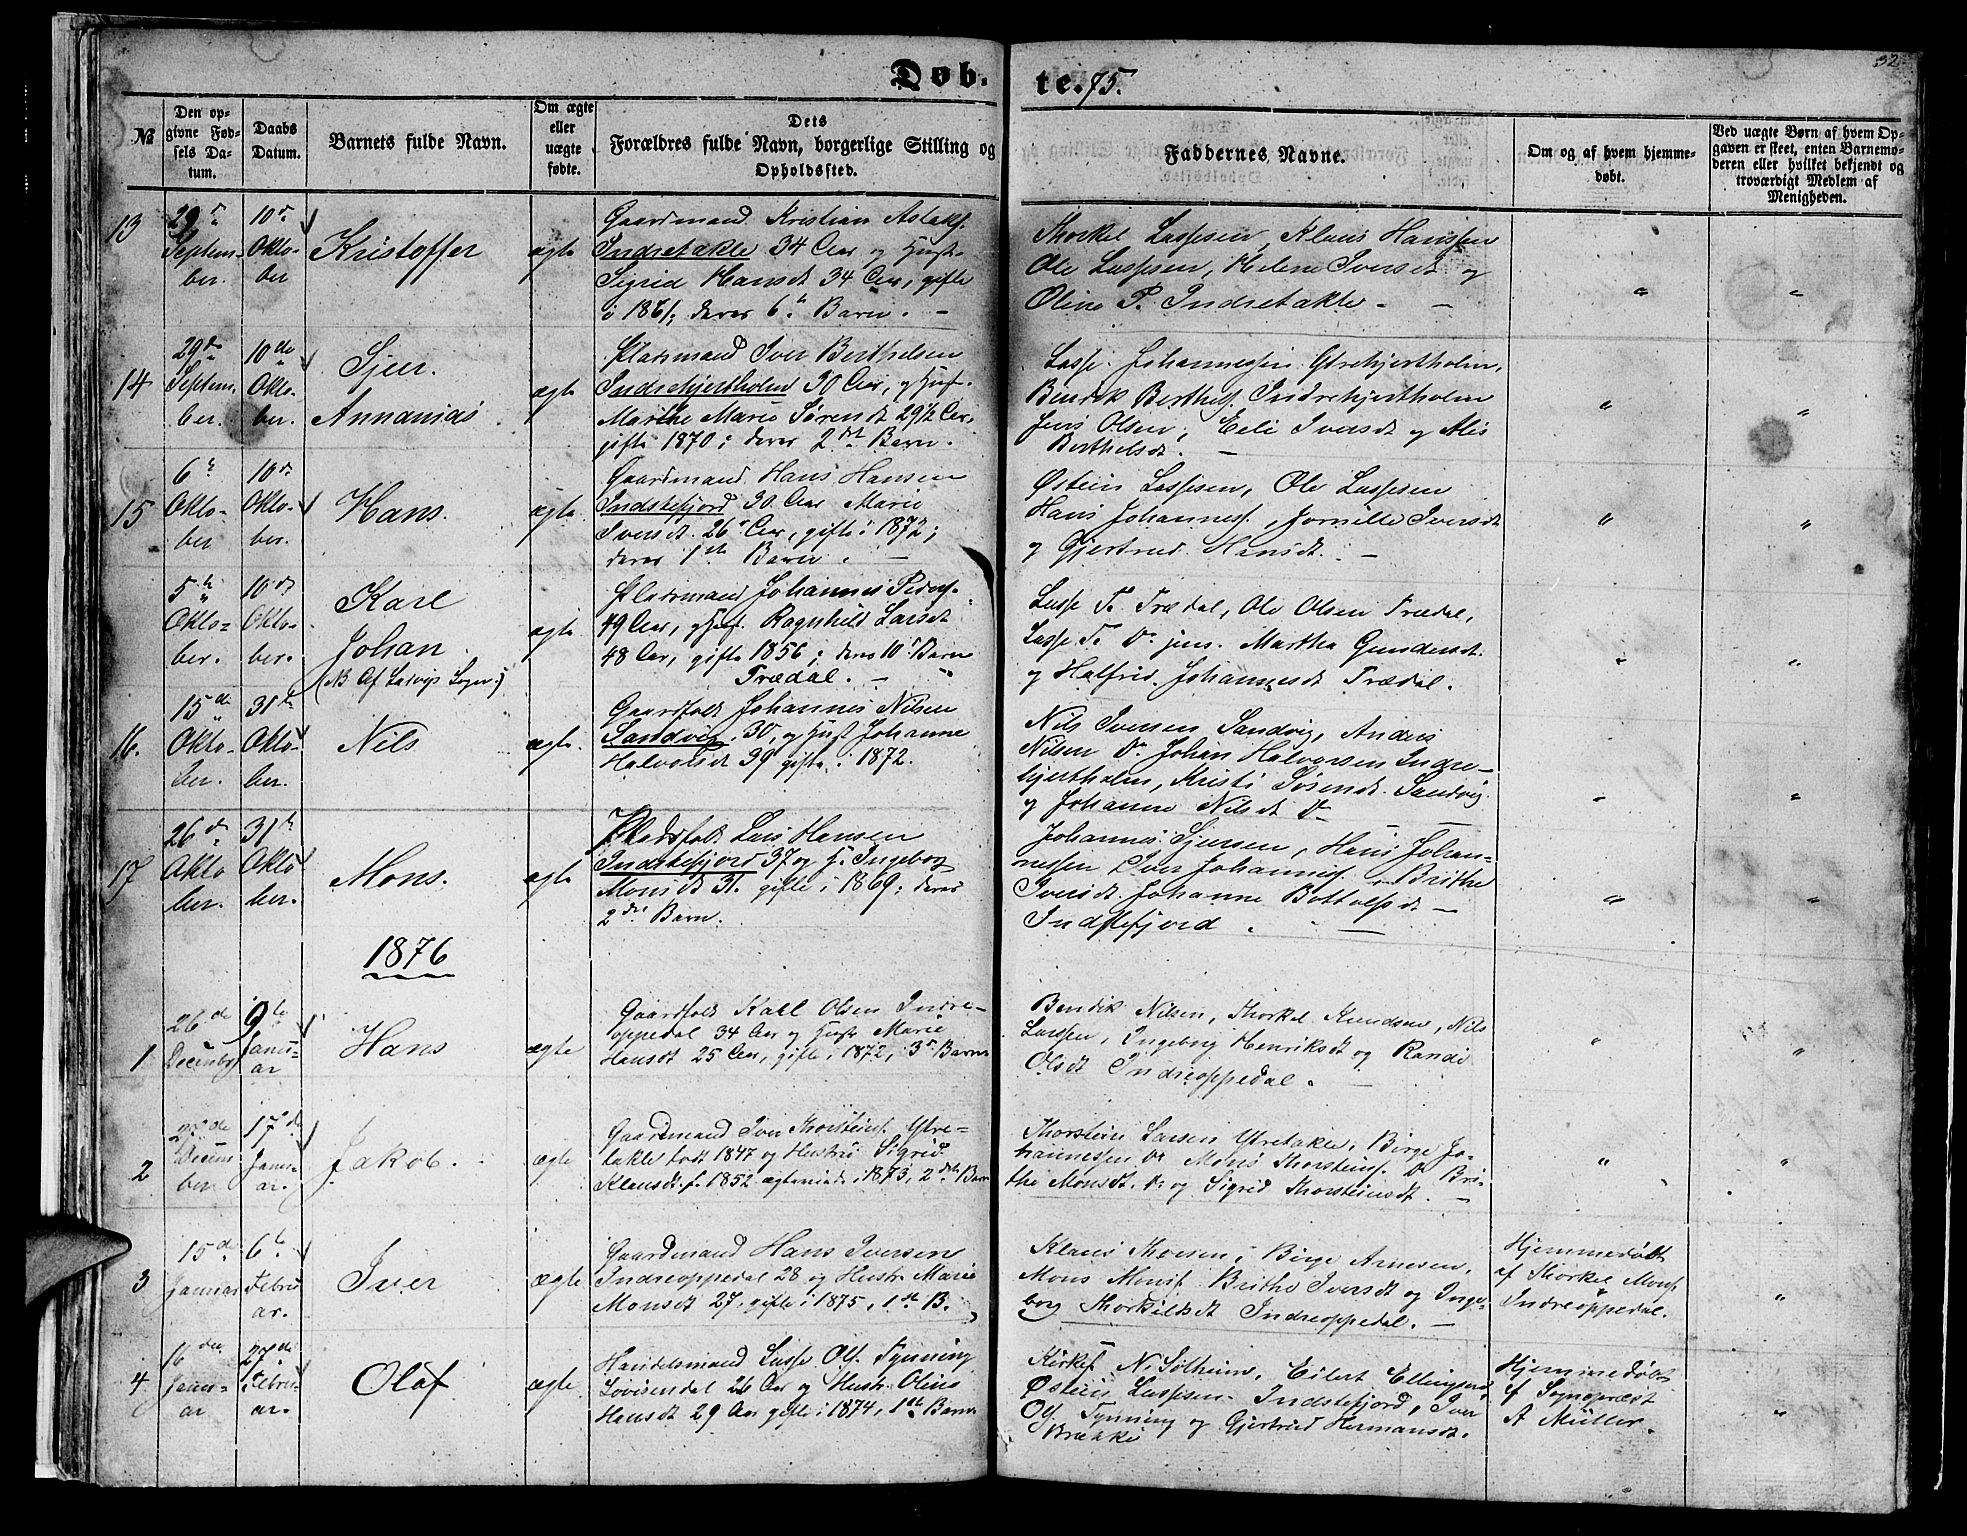 32
Døb-
te. 75.
№
Den op-
givne Fød-
sels Da-
tum.
Daabs
Datum.
Barnets fulde Navn.
Om ægte
eller
uægte
fødte.
Dets
Forældres fulde Navn, borgerlige Stilling og
Opholdssted.
Faddernes Navne.
Om og af hvem hjemme-
døbt.
Ved uægte Børn af hvem Op-
gaven er skeet, enten Barnemo-
deren eller hvilket bekjendt og
troværdigt Medlem af
Menigheden.
13
29
Septem-
ber.
10
Okto-
ber
Kristoffer
ægte
Gaardmand Kristian Aslaks.
Indretakle 34 Aar og Hust.
Sigrid Hansdt 34 Aar, gifte
i 1861; deres 6 Barn. -
Thorkel Lassesen, Klaus Hanssen
Ole Lassesen, Helene Iversdt og
Oline P. Indretakle -
14
29de
Septem.
ber.
10de
Okto-
ber.
Sjur.
Annanias
ægte
Pladsmand Iver Berthelsen
Indrehjertholm 30 Aar, og Huf.
Marthe Marie Sørensdt 29 1/2 Aar,
gifte 1870; deres 2det Barn.
Lasse Johannessen Ytrehjertholm,
Bendik Berthels. Indrehjertholm
Jens Olsen, Eeli Iversdt og Alis
Berthelsdt. -
15
6
Okto-
ber
10de
Okto-
ber.
Hans.
ægte.
Gaardmand Hans Hansen
Indrefjord 30 Aar Marie
Iversdt. 26 Aar, gifte i 1872;
deres 1ste Barn. -
Østein Lassesen, Ole Lassesen
Hans Johanness., Jornille Iversdt
og Gjertrud Hansdt. -
5te
Okto-
ber.
10de
Okto-
ber.
Karl
Johan
(NB Af Ladvigs Sogn.)
ægte
Pladsmand Johannes Peders.
49 Aar, Huf. Ragnhild Larsdt
48 Aar, gifte 1856; deres 10 Barn
Trædal. -
Lasse T. Trædal, Ole Olsen Trædal,
Lasse T. Do jun. Martha Gundersdt.
og Halfrid Johannesdt Trædal.
16.
15de
Okto-
ber.
31te
Okto-
ber.
Nils
ægte.
Gaardfolk Johannes Nilsen
Sandvig, 30, og Hust Johanne
Halvorsdt 39 gifte i 1872.
Nils Iversen Sandvig, Anders
Nilsen Do Johan Halvorsen Indre-
hjertholm, Kristi Sørensdt. Sandvig
og Johanne Nilsdt Do
17
26de
Okto
ber.
31te
Okto
ber.
Mons.
ægte
Pladsfolk Lars Hansen
Indrefjord 37 og H. Ingeborg
Monsdt 31. gifte i 1869; deres
2det Barn.
Johannes Sjursen, Hans Johan-
nessen Iver Johanness. Brithe
Iversdt. Johanne Bottolfsdt -
Indrefjord. -
1876
1
26de
Decembr
9de
Janu-
ar
Hans
ægte
Gaardfolk Karl Olsen Indre-
oppedal 34 Aar og Hustr Marie
Hansdt 25 Aar, gifte i 1872, 3 Barn
Bendik Nilsen, Thorkel Knudsen, Nils
Larssen, Ingeborg Henriksdt og Randi
Olsdt Indreoppedal. -
2
de
Decem
ber
17de
Janu-
ar.
Jakob.
ægte
Gaardmand Iver Thorsteins. Ytre-
takle født 1847 og Hustru Sigrid
Klausdt. f. 1852 ægteviede i 1873, 2det Barn
Thorstein Larsen Ytretakle, Birge Jo-
hannessen Do Mons Thorsteins. Do Bri-
the Monsdt. Do og Sigrid Thorsteinsdt. -
3
15de
Januar
6te
Febru
ar.
Iver
ægte
Gaardmand Hans Iversen
Indreoppedal 28 og Hustr. Marie
Monsdt 27. gifte i 1875, 1ste B.
Klaus Thoesen, Birge Arnesen,
Mons Mons. Brithe Iversdt og Inge-
borg Thorkildsdt Indreoppedal. -
Hjemmedøbt
af Thorkel Mons.
Indreoppedal.
4
16de
Janu-
ar
27de
Febru-
ar.
Olaf
ægte.
Handelsmand Lasse Ols. Tynning
Lovisendal 26 Aar og Hustr. Oline
Hansdt 29 Aar gifte i 1874, 1ste Barn
Kirkes. N. Soltheim, Eilert Ellingsen,
Østein Lassesen Indrefjord, Iver
Ols. Tynning og Gjertrud Hermansdt.
Brække
Hjemmedøbt
af Sognepræst
A Müller.